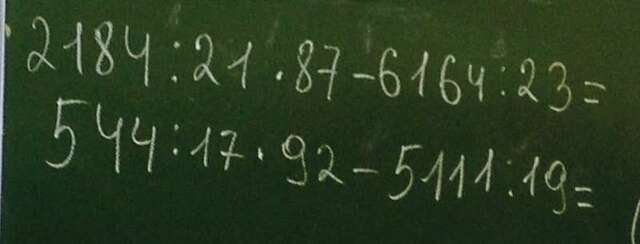 2184:21·87-6164:23=
544:17·92-5111:19=